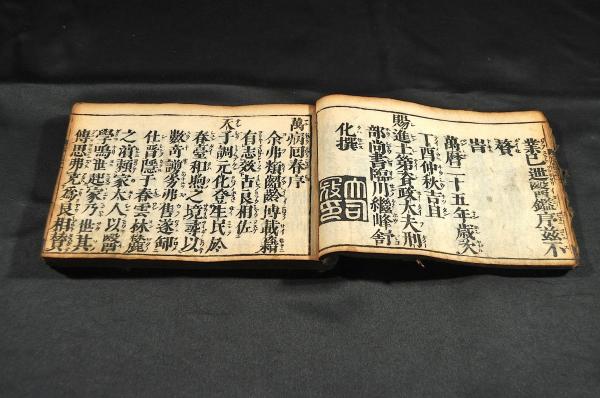 業已毉鑑序茲不
贅
旹
萬曆二十五年歲次
丁酉仲秋吉旦
賜進士第叅政大夫刑
部尚書臨川繼峰舒
化撰
大司寇印
萬病回春序
余弗類髫齡博載籍
有志效古良相佐
天子調元化登生民於
春臺和煦之境尋以
數奇謭劣弗售遂卸
仕晋隱于春雲林麓
之濱類家大人以毉
學鳴起家乃世其
傳思弗克為良相贊